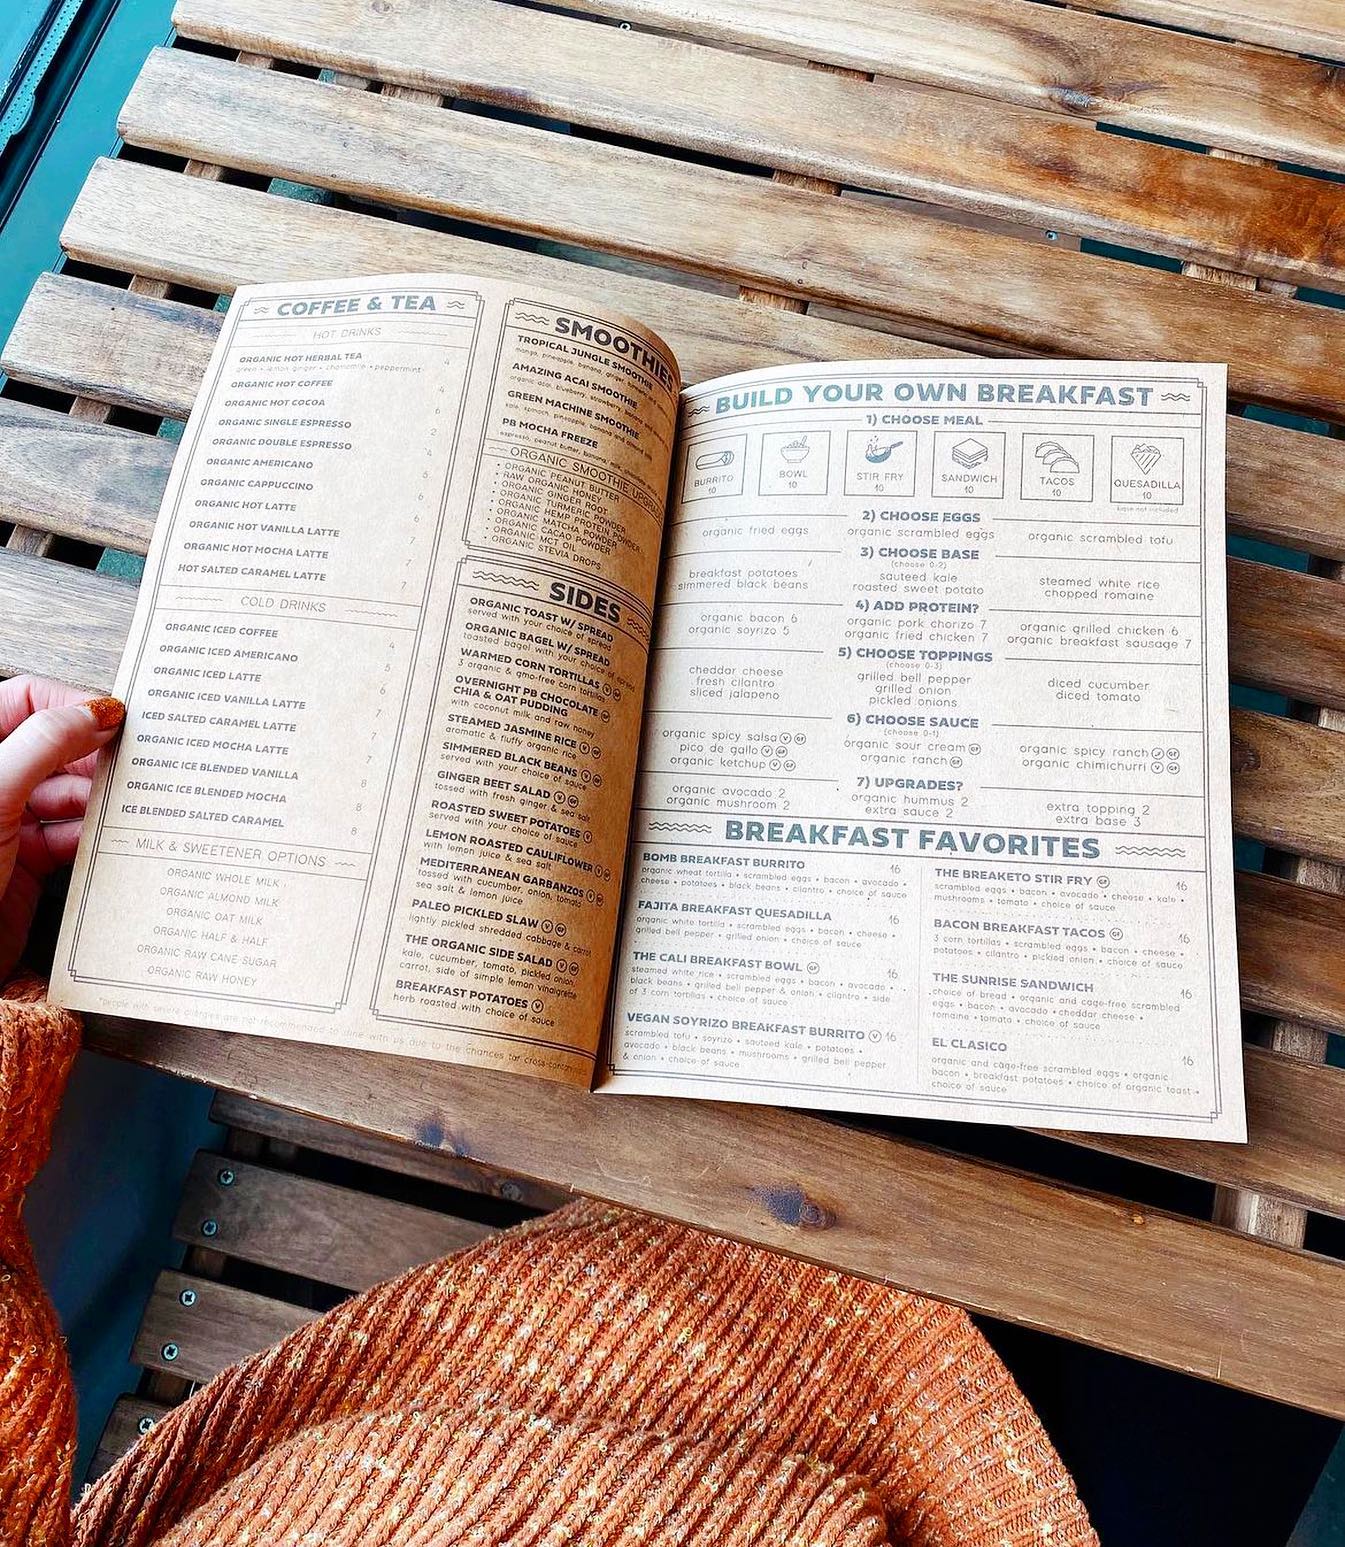 COFFEE & TEA
HOT DRINKS
ORGANIC HOT HERBAL TEA 4
green • lemon ginger • chamomile • peppermint
ORGANIC HOT COFFEE 4
ORGANIC HOT COCOA 6
ORGANIC SINGLE ESPRESSO 2
ORGANIC DOUBLE ESPRESSO 4
ORGANIC AMERICANO 5
ORGANIC CAPPUCCINO 6
ORGANIC HOT LATTE 6
ORGANIC HOT VANILLA LATTE 7
ORGANIC HOT MOCHA LATTE 7
HOT SALTED CARAMEL LATTE 7
COLD DRINKS
ORGANIC ICED COFFEE 4
ORGANIC ICED AMERICANO 5
ORGANIC ICED LATTE 6
ORGANIC ICED VANILLA LATTE 7
ICED SALTED CARAMEL LATTE 7
ORGANIC ICED MOCHA LATTE 7
ORGANIC ICE BLENDED VANILLA 8
ORGANIC ICE BLENDED MOCHA 8
ICE BLENDED SALTED CARAMEL 8
MILK & SWEETENER OPTIONS
ORGANIC WHOLE MILK
ORGANIC ALMOND MILK
ORGANIC OAT MILK
ORGANIC HALF & HALF
ORGANIC RAW CANE SUGAR
ORGANIC RAW HONEY
*people with severe allergies are not recommended to dine with us due to the chances for cross-contam
SMOOTHIES
TROPICAL JUNGLE SMOOTHIE
mango, pineapple, banana, ginger,
AMAZING ACAI SMOOTHIE
organic acai, blueberry, strawberry, banana
GREEN MACHINE SMOOTHIE
kale, spinach, pineapple, banana and
PB MOCHA FREEZE
espresso, peanut butter, banana, milk,
ORGANIC SMOOTHIE UPGRA
• ORGANIC PEANUT BUTTER
• RAW ORGANIC HONEY
• ORGANIC GINGER ROOT
• ORGANIC TURMERIC POWDER
• ORGANIC HEMP PROTEIN POWDER
• ORGANIC MATCHA POWDER
• ORGANIC CACAO POWDER
• ORGANIC MCT OIL
• ORGANIC STEVIA DROPS
SIDES
ORGANIC TOAST W/ SPREAD
served with your choice of spread
ORGANIC BAGEL W/ SPREAD
toasted bagel with your choice of spread
WARMED CORN TORTILLAS V GF
3 organic & gmo-free corn tortillas
OVERNIGHT PB CHOCOLATE
CHIA & OAT PUDDING GF
with coconut milk and raw honey
STEAMED JASMINE RICE V GF
aromatic & fluffy organic rice
SIMMERED BLACK BEANS V GF
served with your choice of sauce
GINGER BEET SALAD V GF
tossed with fresh ginger & sea salt
ROASTED SWEET POTATOES V
served with your choice of sauce
LEMON ROASTED CAULIFLOWER V GF
with lemon juice & sea salt
MEDITERRANEAN GARBANZOS V GF
tossed with cucumber, onion, tomato
sea salt & lemon juice
PALEO PICKLED SLAW V GF
lightly pickled shredded cabbage & carrot
THE ORGANIC SIDE SALAD V GF
kale, cucumber, tomato, pickled onion,
carrot, side of simple lemon vinaigrette
BREAKFAST POTATOES V
herb roasted with choice of sauce
BUILD YOUR OWN BREAKFAST
1) CHOOSE MEAL
BURRITO 10
BOWL 10
STIR FRY 10
SANDWICH 10
TACOS 10
QUESADILLA 10
base not included
2) CHOOSE EGGS
organic fried eggs organic scrambled eggs organic scrambled tofu
3) CHOOSE BASE
(choose 0-2)
breakfast potatoes sauteed kale steamed white rice
simmered black beans roasted sweet potato chopped romaine
4) ADD PROTEIN?
organic bacon 6 organic pork chorizo 7 organic grilled chicken 6
organic soyrizo 5 organic fried chicken 7 organic breakfast sausage 7
5) CHOOSE TOPPINGS
(choose 0-3)
cheddar cheese grilled bell pepper diced cucumber
fresh cilantro grilled onion diced tomato
sliced jalapeno pickled onions
6) CHOOSE SAUCE
(choose 0-1)
organic spicy salsa V GF organic sour cream GF organic spicy ranch V GF
pico de gallo V GF organic ranch GF organic chimichurri V GF
organic ketchup V GF
7) UPGRADES?
organic avocado 2 organic hummus 2 extra topping 2
organic mushroom 2 extra sauce 2 extra base 3
BREAKFAST FAVORITES
BOMB BREAKFAST BURRITO 16
organic wheat tortilla • scrambled eggs • bacon • avocado •
cheese • potatoes • black beans • cilantro • choice of sauce
FAJITA BREAKFAST QUESADILLA 16
organic white tortilla • scrambled eggs • bacon • cheese •
grilled bell pepper • grilled onion • choice of sauce
THE CALI BREAKFAST BOWL GF 16
steamed white rice • scrambled eggs • bacon • avocado •
black beans • grilled bell pepper & onion • cilantro • side
of 3 corn tortillas • choice of sauce
VEGAN SOYRIZO BREAKFAST BURRITO V 16
scrambled tofu • soyrizo • sauteed kale • potatoes •
avocado • black beans • mushrooms • grilled bell pepper
& onion • choice of sauce
THE BREAKETO STIR FRY GF 16
scrambled eggs • bacon • avocado • cheese • kale •
mushrooms • tomato • choice of sauce
BACON BREAKFAST TACOS GF 16
3 corn tortillas • scrambled eggs • bacon • cheese •
potatoes • cilantro • pickled onion • choice of sauce
THE SUNRISE SANDWICH 16
choice of bread • organic and cage-free scrambled
eggs • bacon • avocado • cheddar cheese •
romaine • tomato • choice of sauce
EL CLASICO 16
organic and cage-free scrambled eggs • organic
bacon • breakfast potatoes • choice of organic toast •
choice of sauce